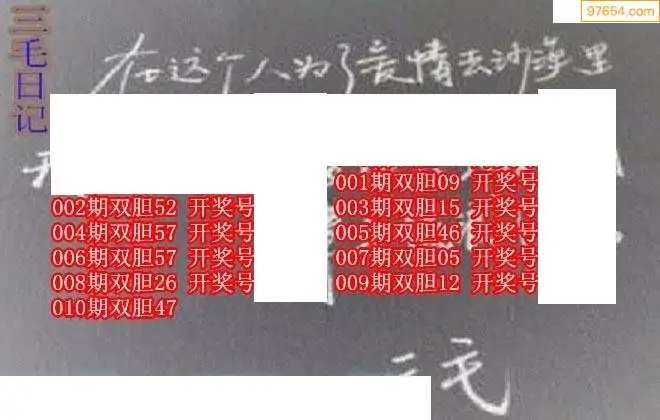 97654.com
三毛日记
在这个人为了爱情去沙漠里
001期双胆09 开奖号
002期双胆52 开奖号
003期双胆15 开奖号
004期双胆57 开奖号
005期双胆46 开奖号
006期双胆57 开奖号
007期双胆05 开奖号
008期双胆26 开奖号
009期双胆12 开奖号
010期双胆47
三毛